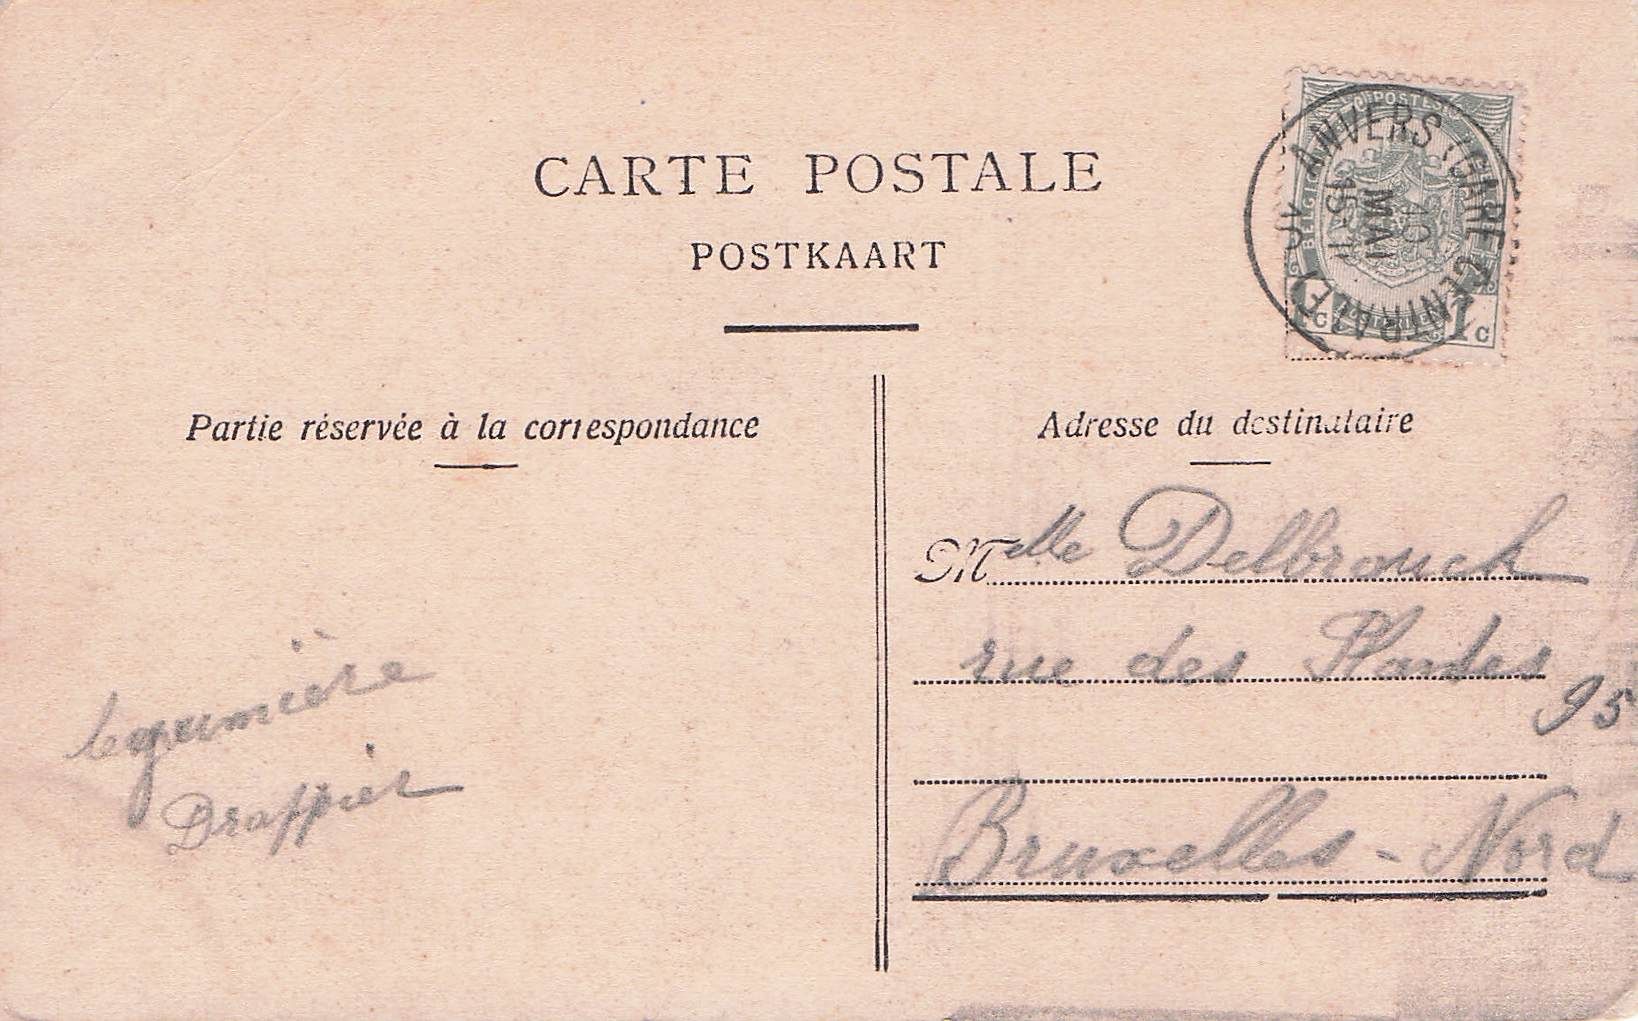 CARTE POSTALE
POSTKAART
POSTES
BELGIQUE
1 c
1 c
ANVERS (GARE CENTRALE)
10
MAI
15
Partie réservée à la correspondance
Adresse du destinataire
Melle Delbrouck
rue des Plantes
95
Bruxelles - Nord
Drappier